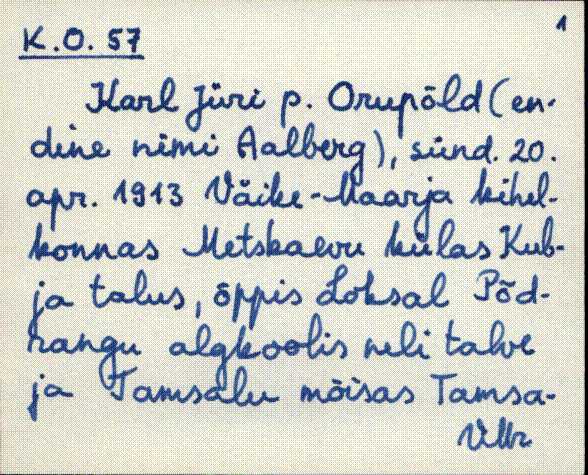 1
K.O. 57
Karl Jüri p. Orupõld (en-
dine nimi Aalberg), sünd. 20.
apr. 1913 Väike-Maarja kihel-
konnas Metskaevu külas Kub-
ja talus, õppis Loksal Põd-
rangu algkoolis neli talve
ja Tamsalu mõisas Tamsa-